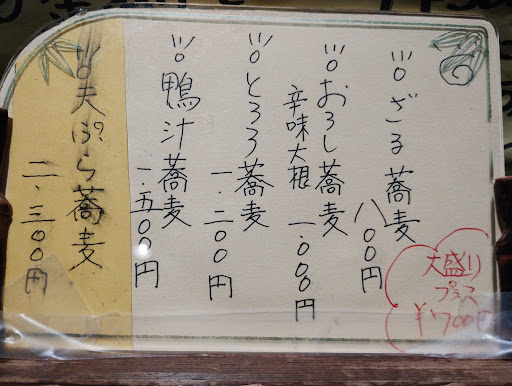 ざる蕎麦
八〇〇円
おろし蕎麦
辛味大根
一.〇〇〇円
とろろ蕎麦
一.二〇〇円
鴨汁蕎麦
一.五〇〇円
天ぷら蕎麦
二.三〇〇円
大盛り
プラス
¥700円